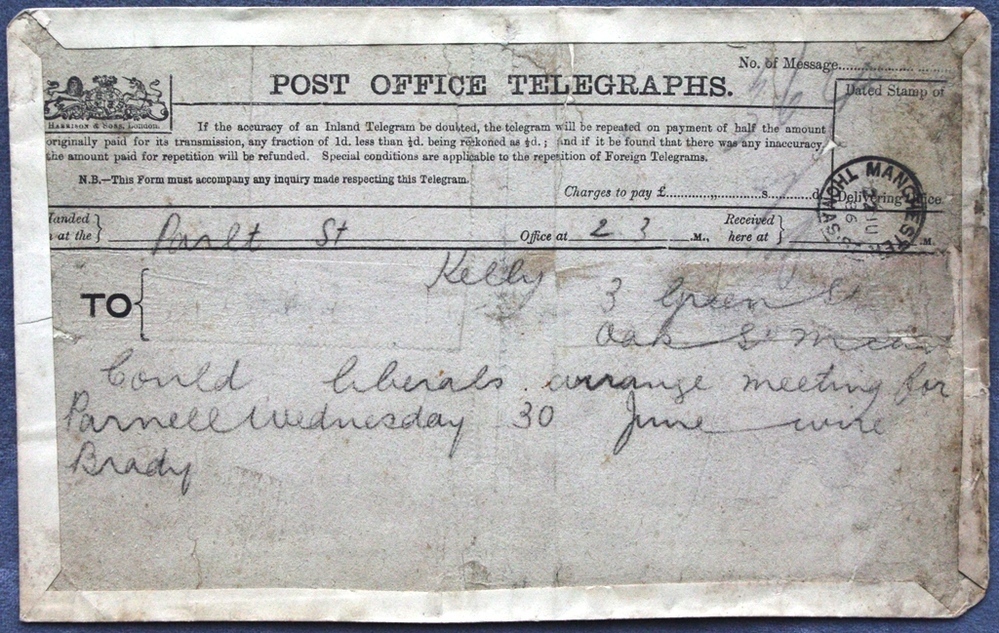 No. of Message
POST OFFICE TELEGRAPHS.
Dated Stamp of
HARRISON & SONS, London.
If the accuracy of an Inland Telegram be doubted, the telegram will be repeated on payment of half the amount
originally paid for its transmission, any fraction of 1d. less than ½d. being reckoned as ½d.; and if it be found that there was any inaccuracy,
the amount paid for repetition will be refunded. Special conditions are applicable to the repetition of Foreign Telegrams.
N.B.—This Form must accompany any inquiry made respecting this Telegram.
Charges to pay £ s. d.
Delivering Office
MANCHESTER
Handed
at the
St
Office at 2 3 .M.,
Received
here at
.M.
TO
Kelly
3 Green St
Oak St
Could liberals arrange meeting for
Parnell Wednesday 30 June wire
Brady